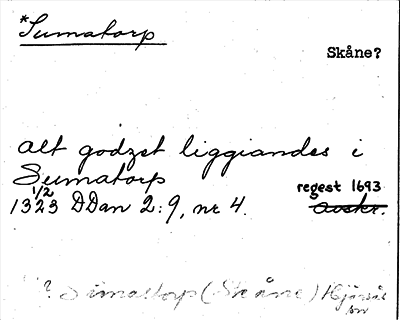 *Sumatorp
Skåne?
alt godzet liggiandes i
Sumatorp
1/2
1323 DDan 2:9, nr 4.
regest 1693
avskr.
? Simastorp (Skåne)